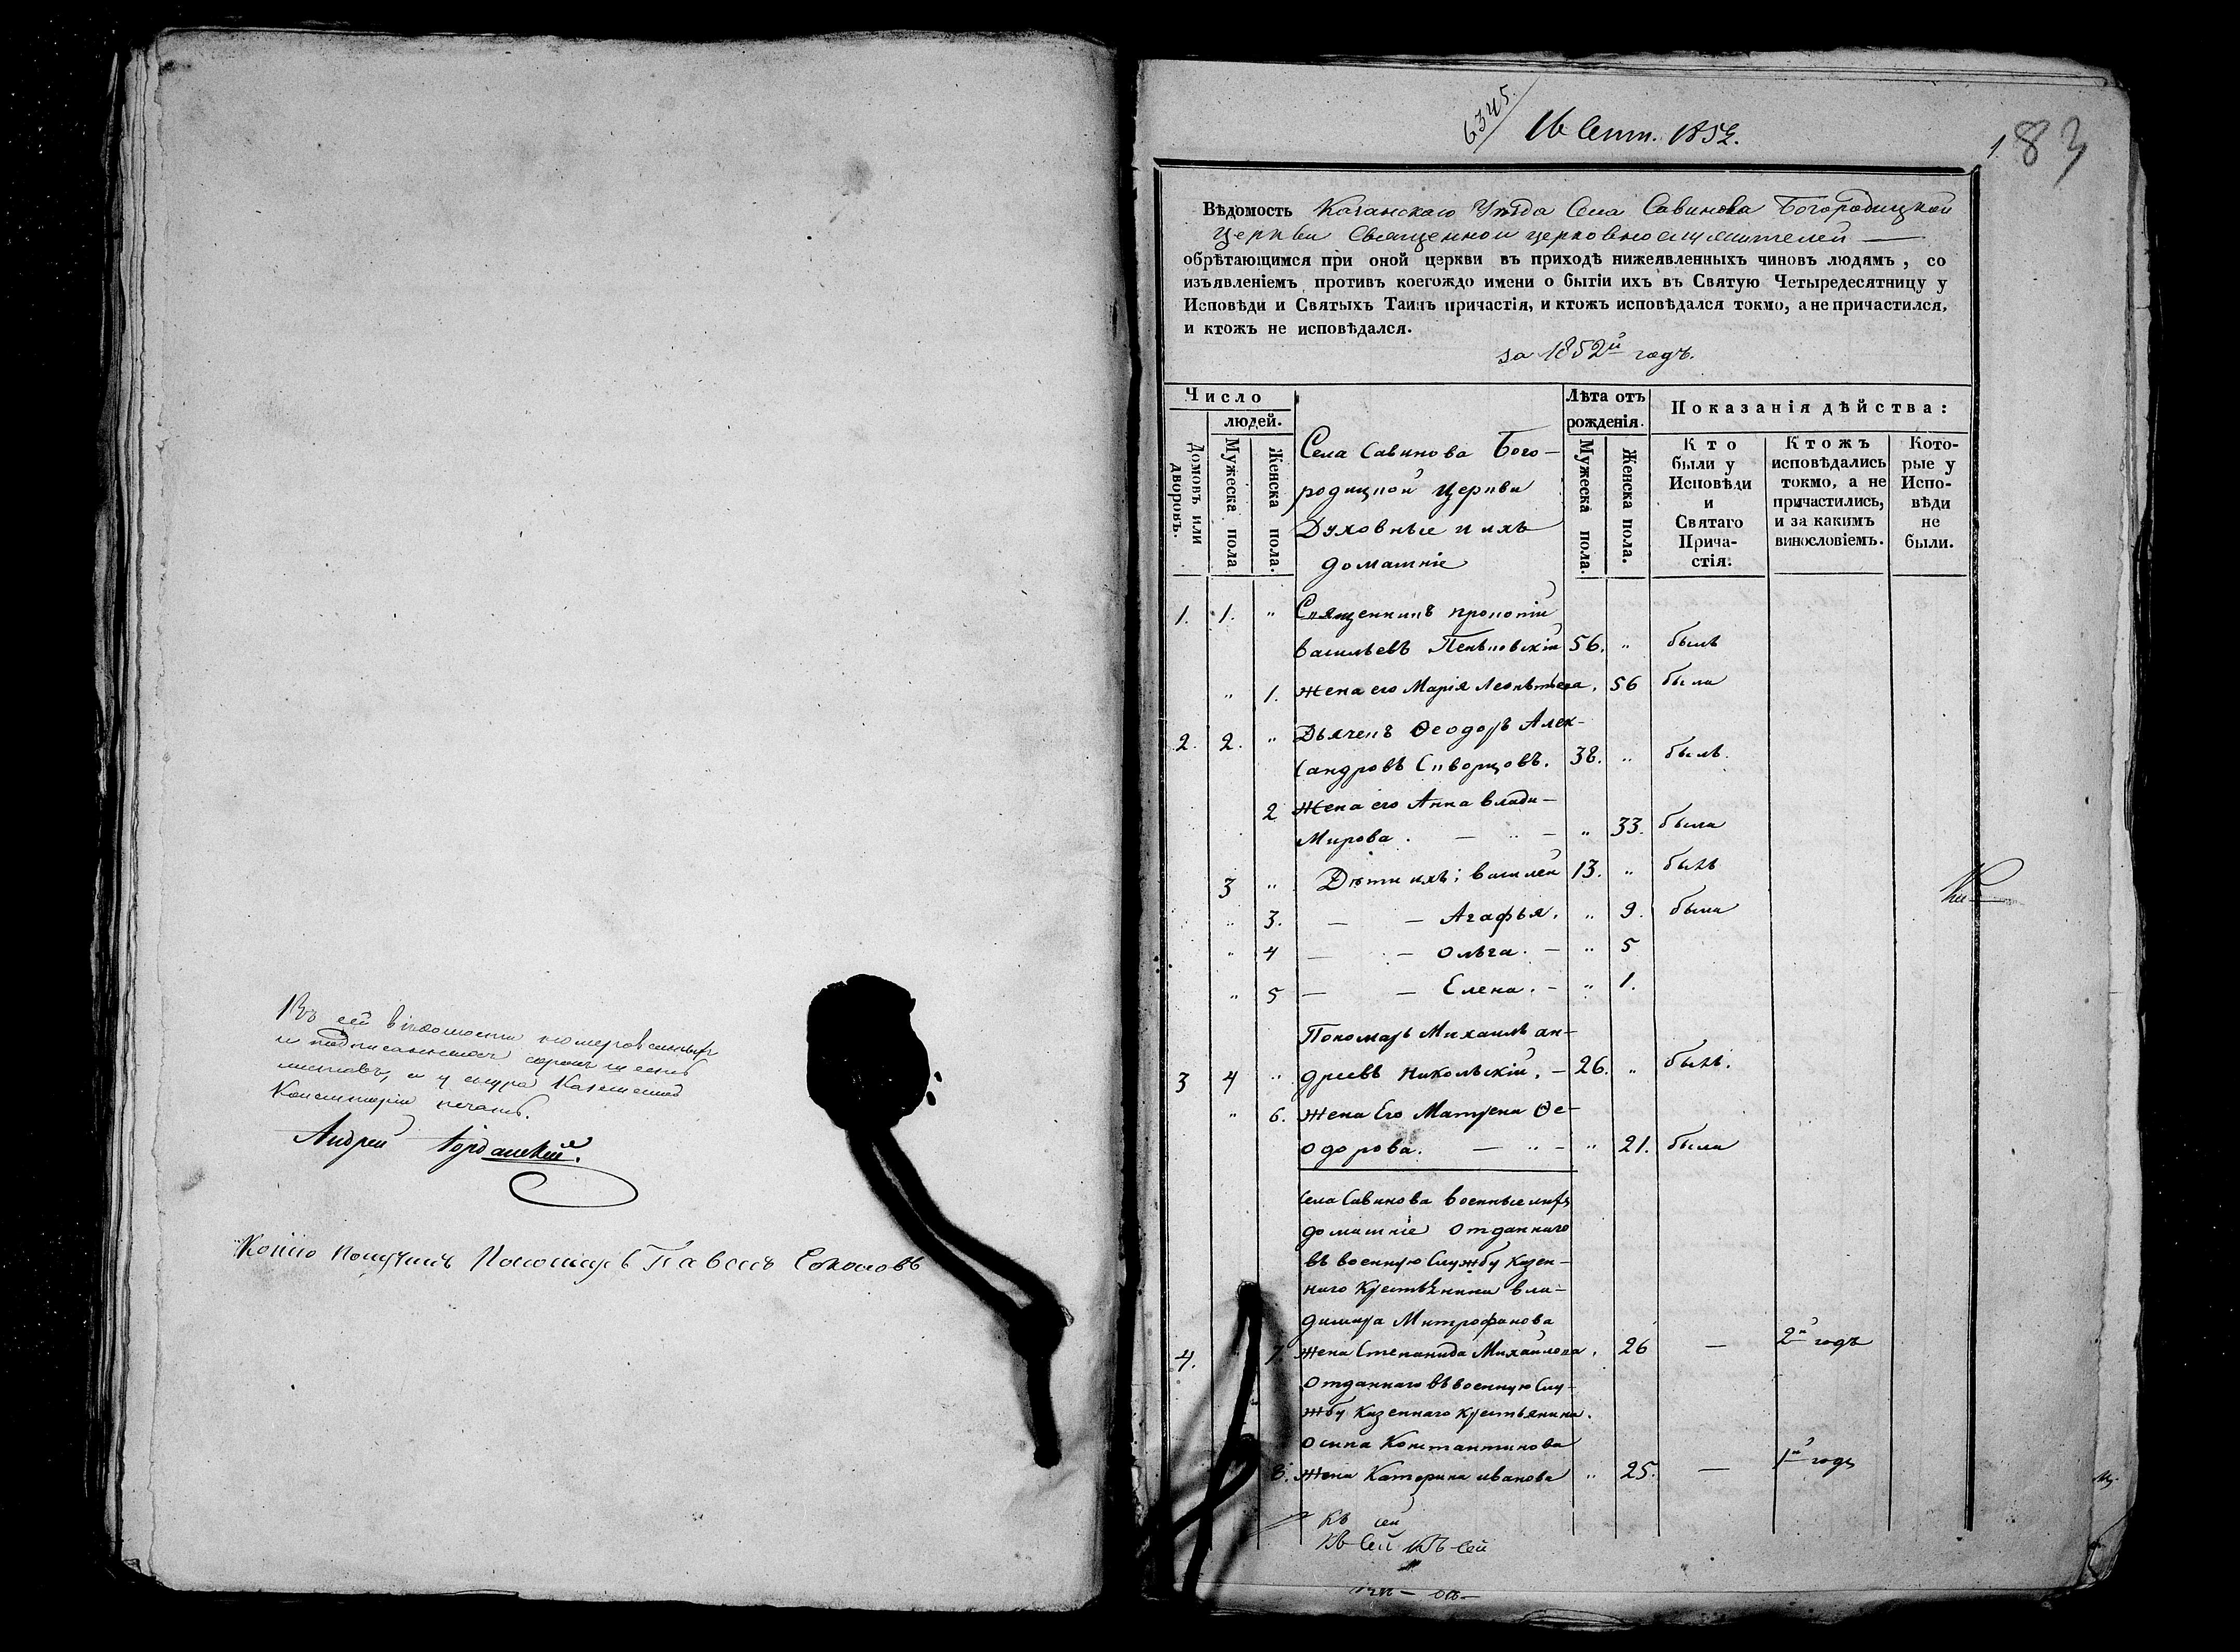 Въ сей вѣдомости номерованныхъ
и подписанныхъ сорокъ
листовъ, а у шнура Казенная
Консисторіи печать.
Андрей Іорданскій.
Копію получилъ Пономарь Павелъ Соколовъ
6345
16 Сент. 1852.
1
83
Вѣдомость Казанскаго Уѣзда Села Савинова Богородицкой
Церкви Священно и церковнослужителей —
обрѣтающимся при оной церкви въ приходѣ нижеявленныхъ чиновъ людямъ, со
изъявленіемъ противъ коегождо имени о бытіи ихъ въ Святую Четыредесятницу у
Исповѣди и Святыхъ Таинъ причастія, и ктожъ исповѣдался токмо, а не причастился,
и ктожъ не исповѣдался.
за 1852й годъ.
Число
людей.
Домовъ или дворовъ.
Мужеска пола
Женска пола.
Села Савинова Бого-
родицкой Церкви
Духовные и ихъ
домашніе
Лѣта отъ
рожденія.
Мужеска пола.
Женска пола.
Показанія дѣйства:
Кто
были у
Исповѣди
и
Святаго
Прича-
стія:
Ктожъ
исповѣдались
токмо, а не
причастились,
и за какимъ
винословіемъ.
Кото-
рые у
Испо-
вѣди
не
были.
1. 1. " Священникъ Прокопій
Васильевъ 56. " былъ
" 1. Жена его Марія Леонтьева, 56 была
2. 2. " Дьячекъ Ѳеодоръ Алек-
сандровъ Скворцовъ. 38. " былъ.
2 Жена его Анна Влади-
мирова. — " — " 33. была
3 " Дѣти ихъ: Василей 13. " былъ
" 3. — — Агафья. " 9. была
" 4 — — Ольга. — " 5
" 5 — — Елена. — " 1.
Пономарь Михаилъ Ан-
3 4 " дреевъ Никольскій. — 26. " былъ.
" 6. Жена Его Матрена Ѳе-
одорова. — " — " 21. была
Села Савинова военные и ихъ
домашніе Отданнаго
въ военную Службу Казен-
наго Крестьянина Вла-
димира Митрофанова
4. 7. Жена Степанида Михайлова, 26 — 2й годъ
Отданнаго въ военную Слу-
жбу Казеннаго Крестьянина.
Осипа Константинова
8. Жена Катерина Иванова " 25. — 1й годъ
Къ сей
Къ Сей Къ Сей